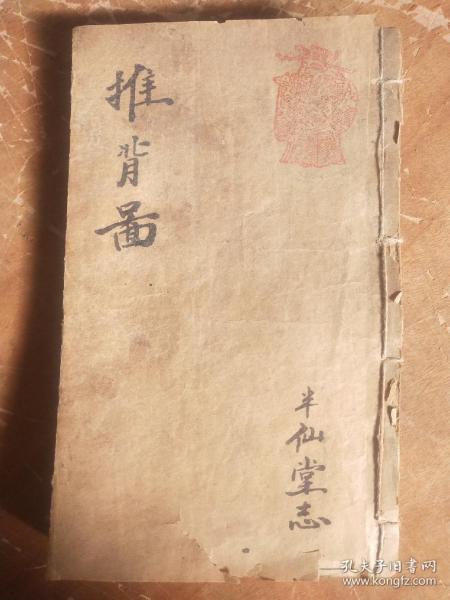 推背啚
半仙堂志
孔夫子旧书网
www.kongfz.com